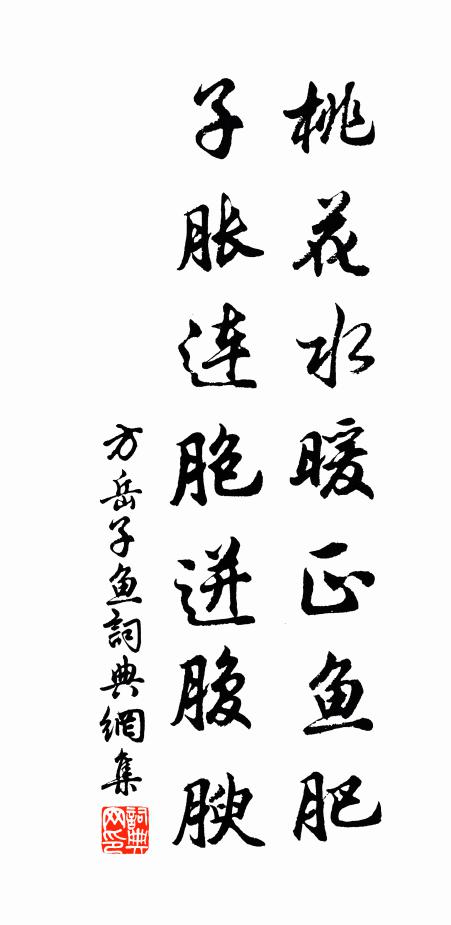 桃花水暖正鱼肥
子胀连胞迸腹腴
方岳子鱼詞典網集
詞典网印